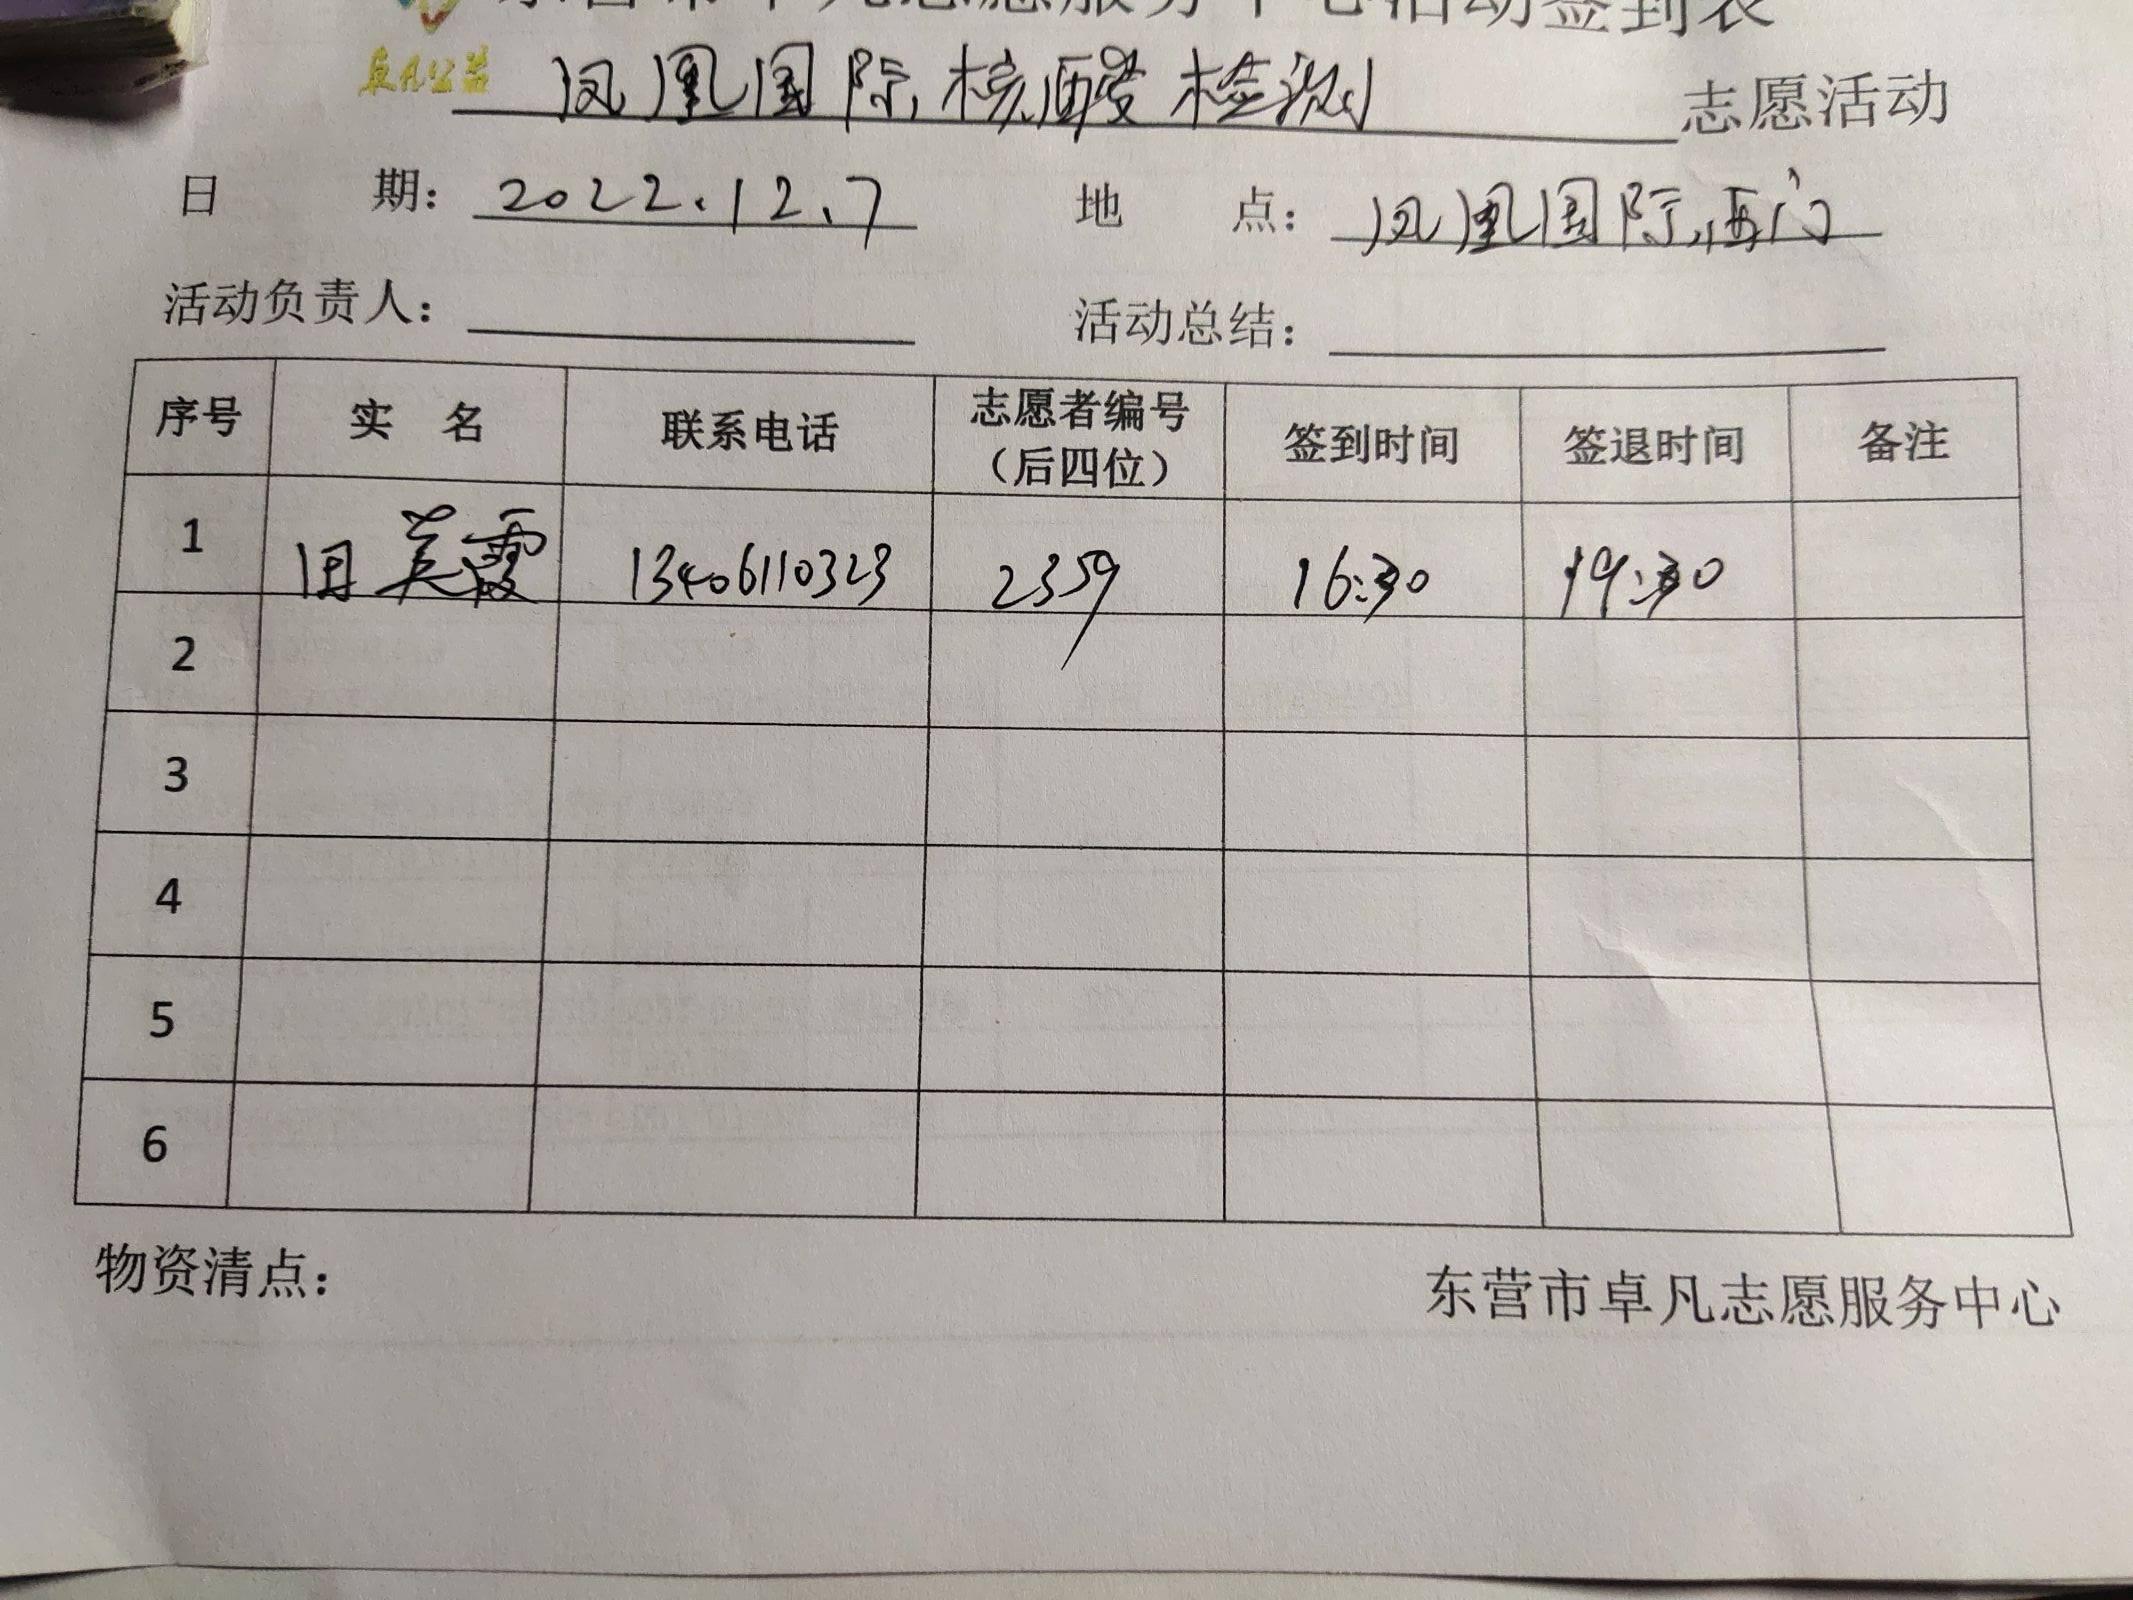 东营市卓凡志愿服务中心活动签到表
卓凡公益
凤凰国际核酸检测 志愿活动
日 期： 2022.12.7 地 点： 凤凰国际西门
活动负责人： 活动总结：
序号 实 名 联系电话 志愿者编号（后四位） 签到时间 签退时间 备注
1 闫英霞 13406110323 2359 16:30 19:30
2
3
4
5
6
物资清点：
东营市卓凡志愿服务中心